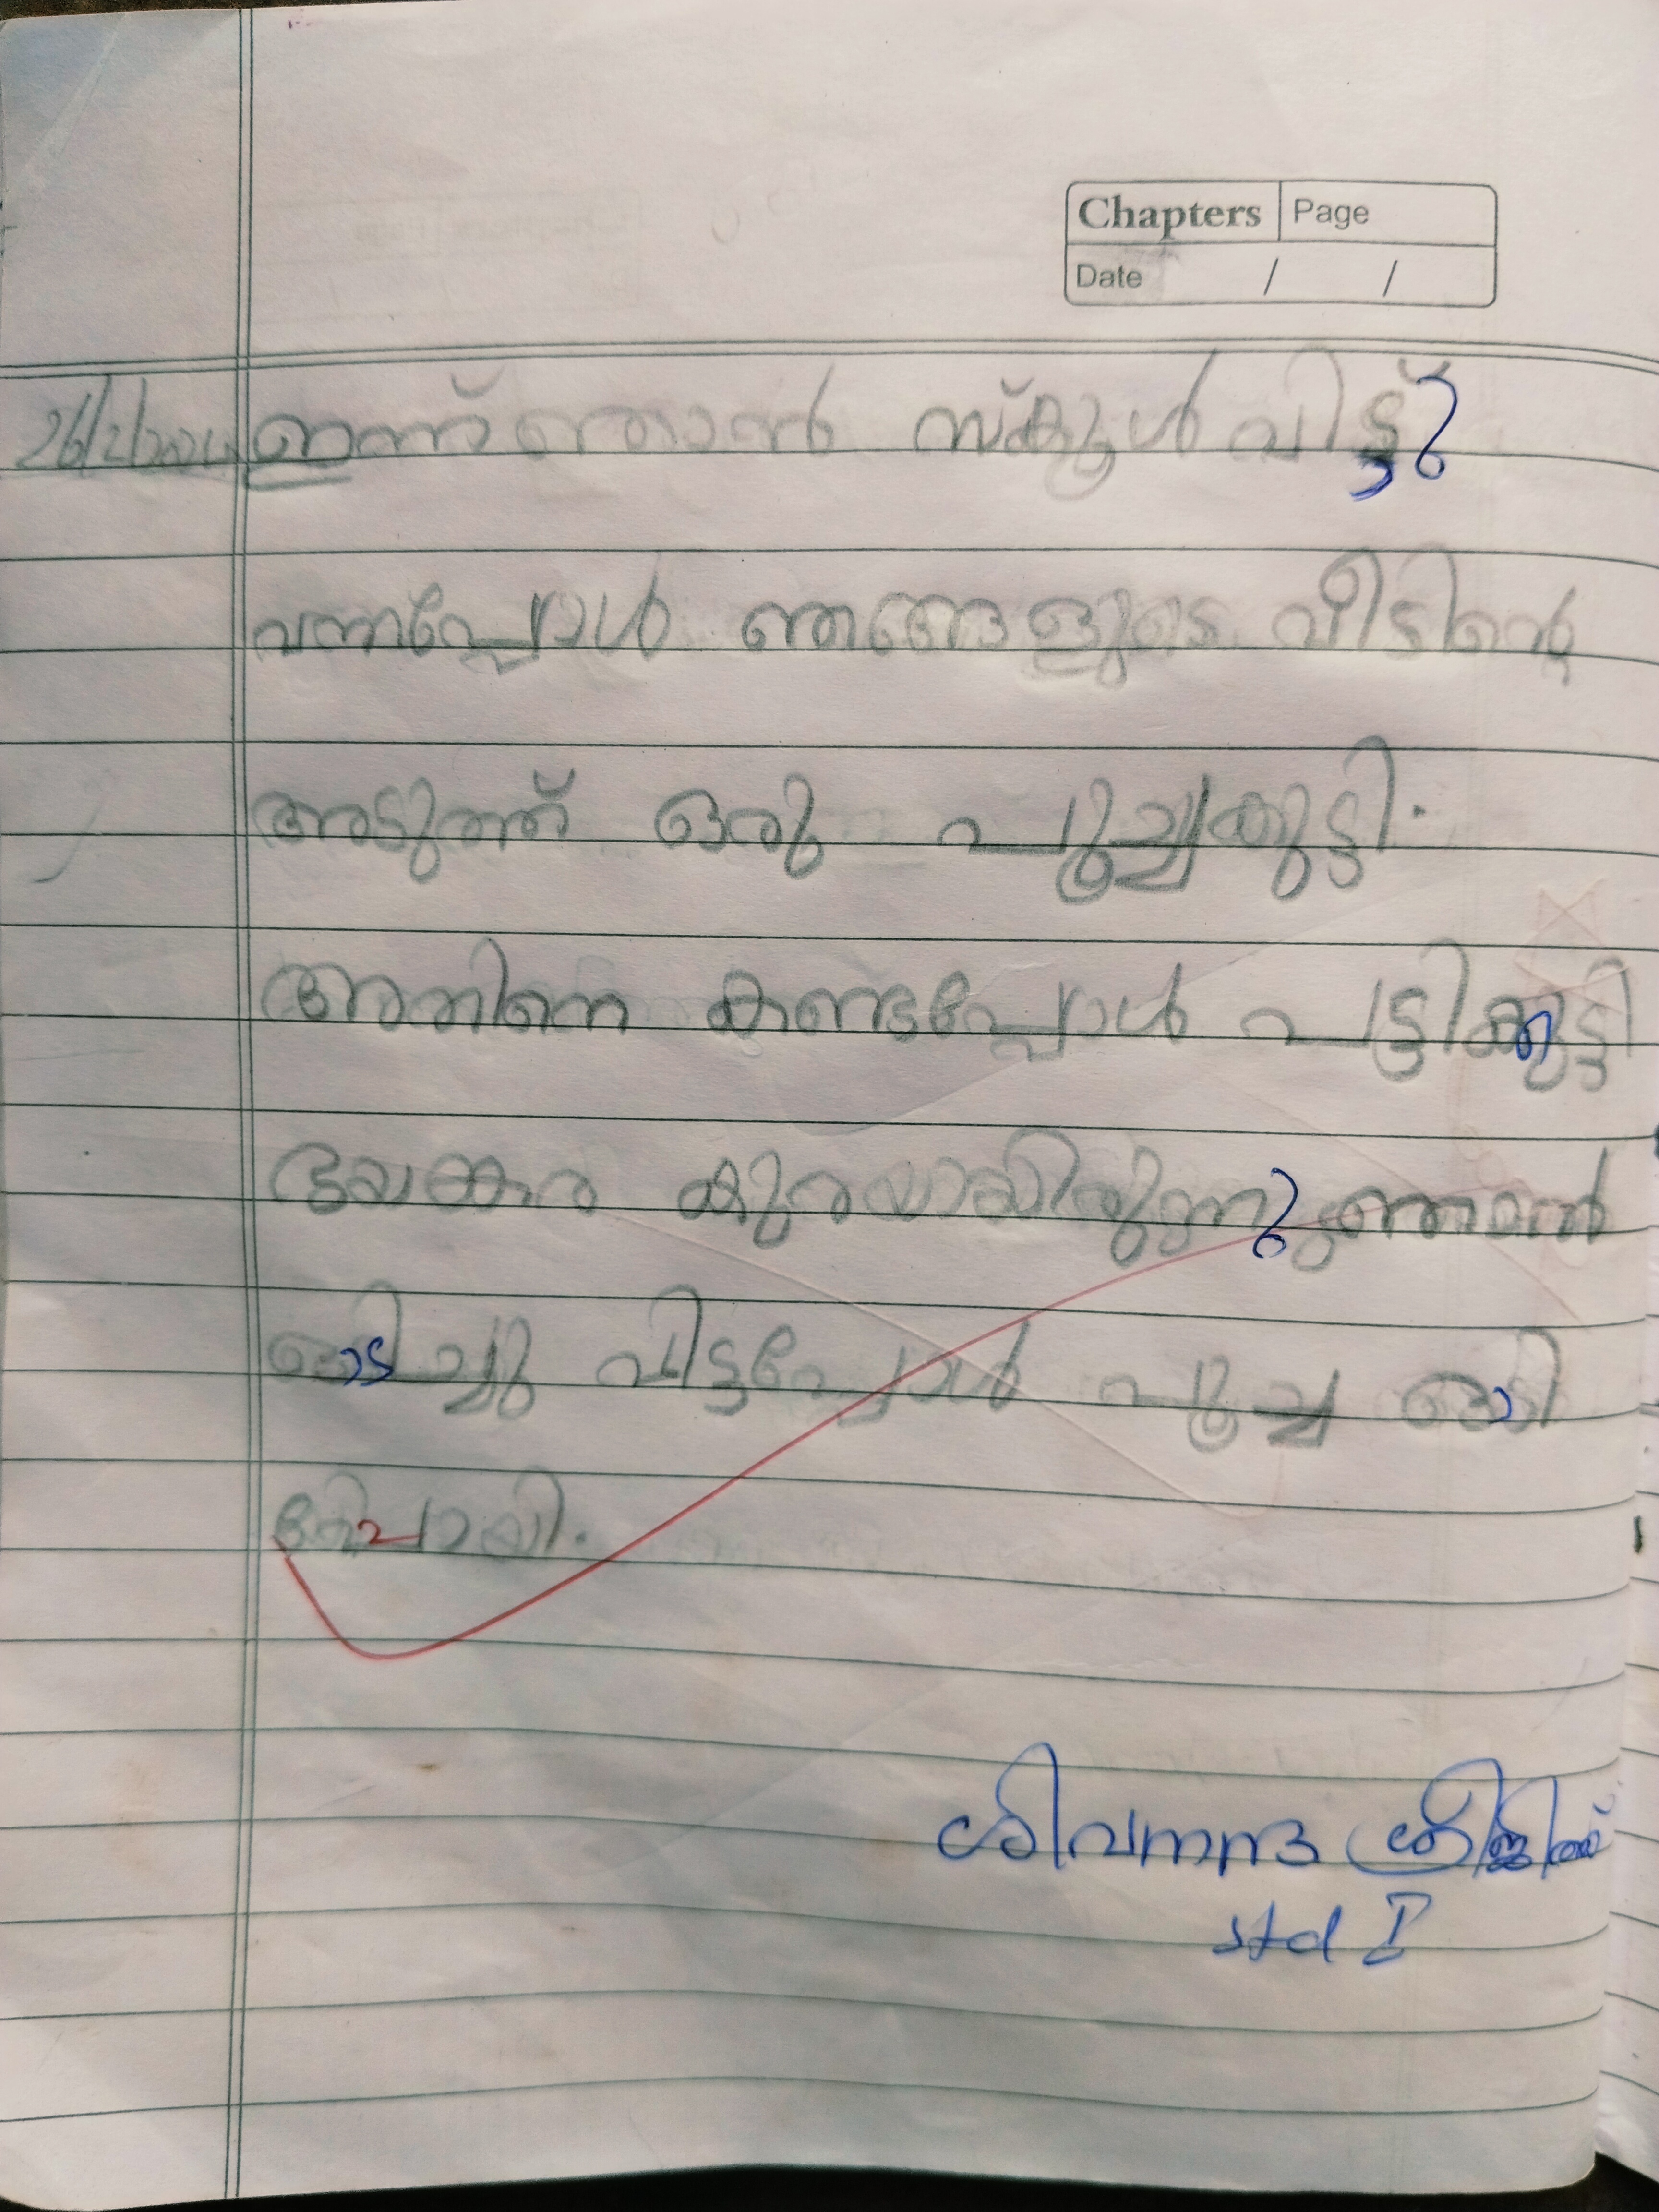 Chapters Page
Date / /
26/2/2024 ഇന്ന് ഞാൻ സ്കൂൾ വിട്ടു
വന്നപ്പോൾ ഞങ്ങളുടെ വീടിന്റെ
അടുത്ത് ഒരു പൂച്ചക്കുട്ടി.
അതിനെ കണ്ടപ്പോൾ പട്ടിക്കുട്ടി
ഭയങ്കര കുരയായിരുന്നു ഞാൻ
ഓടിച്ചു വിട്ടപ്പോൾ പൂച്ച ഓടി
പോയി.
ശിവനന്ദ ശ്രീജിത്ത്
std I